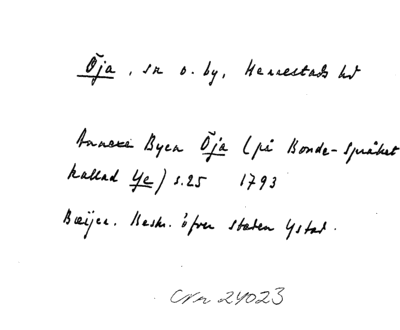 Öja, sn o. by, Herrestads hd
Annexe Byen Öja (på Bonde-språket
kallad Ye) s.25 1793
Bæijer. Beskr. öfver staden Ystad.
24023